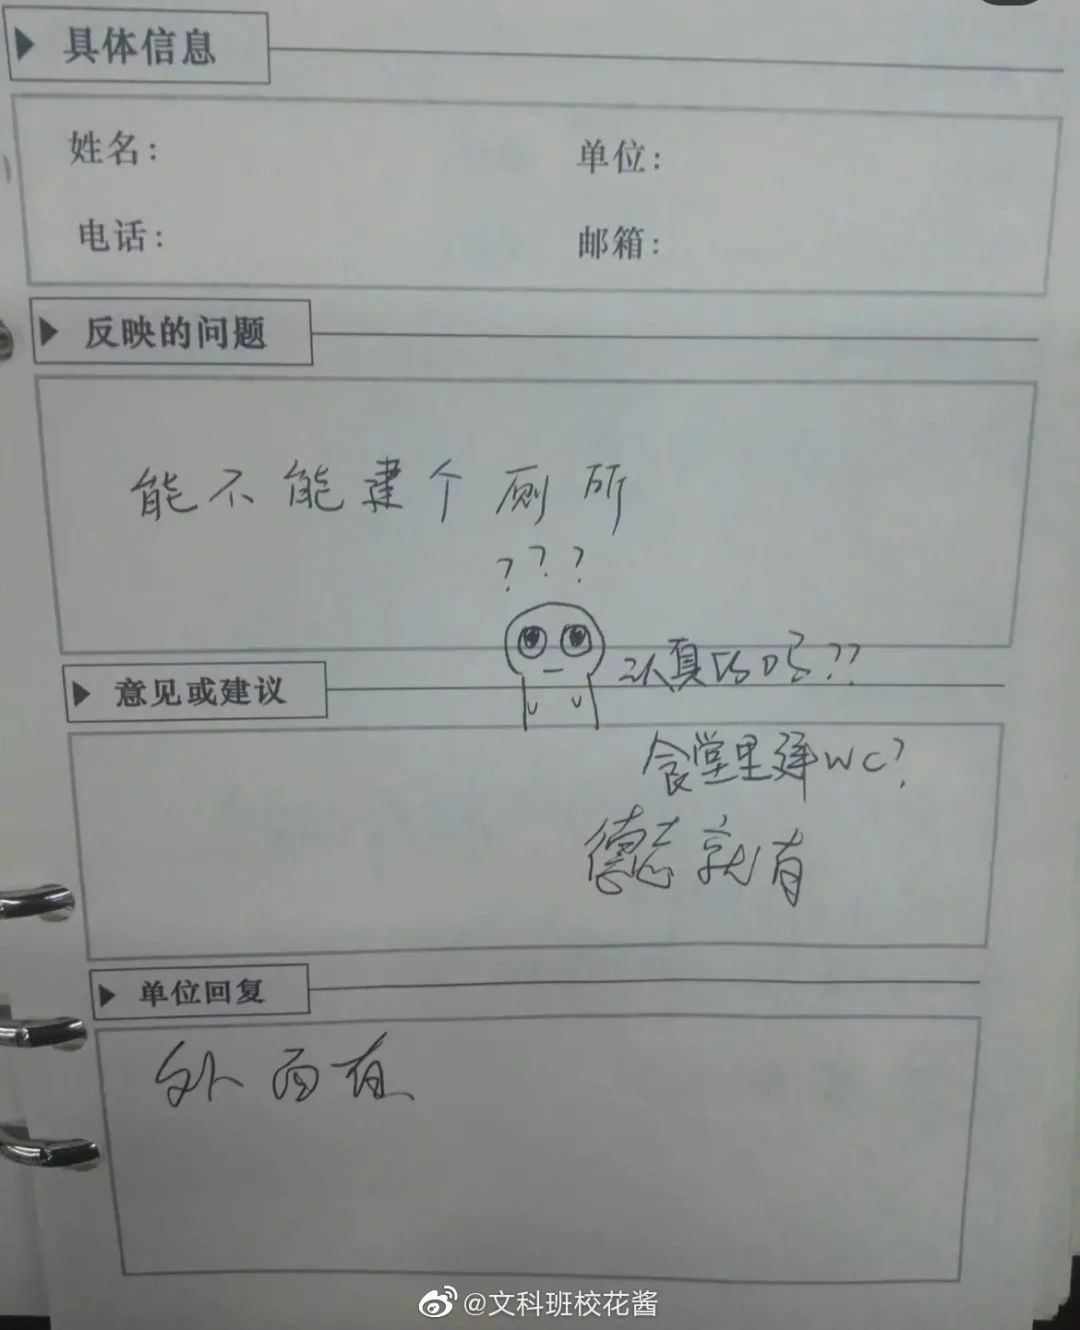 具体信息
姓名： 单位：
电话： 邮箱：
反映的问题
能不能建个厕所
???
认真的吗??
意见或建议
食堂里建WC?
德志就有
单位回复
外面有
@文科班校花酱